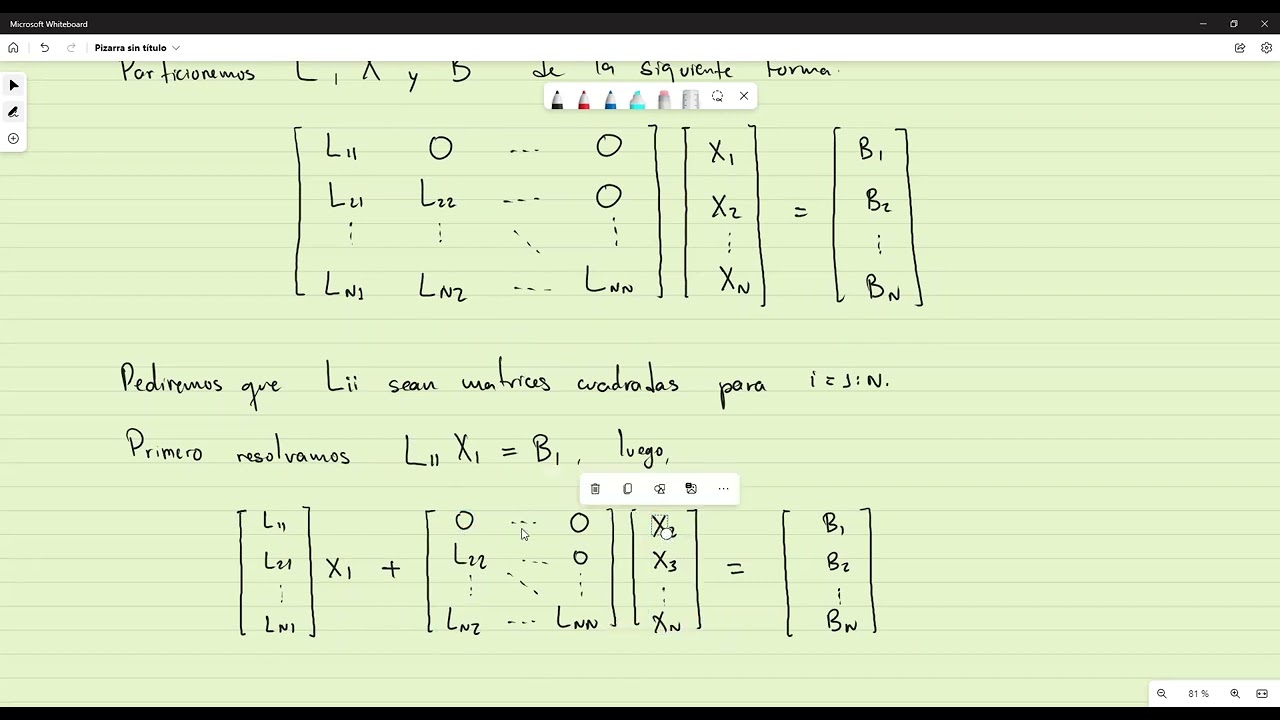 Microsoft Whiteboard
Pizarra sin título
Particionemos L, X y B de la siguiente forma.
L11 0 ... 0 X1 B1
L21 L22 ... 0 X2 = B2
⋮ ⋮ ⋱ ⋮ ⋮ ⋮
LN1 LN2 ... LNN XN BN
Pediremos que Lii sean matrices cuadradas para i=1:N.
Primero resolvamos L11 X1 = B1, luego,
L11 0 ... 0 X2 B1
L21 X1 + L22 ... 0 X3 = B2
⋮ ⋮ ⋱ ⋮ ⋮ ⋮
LN1 LN2 ... LNN XN BN
81 %